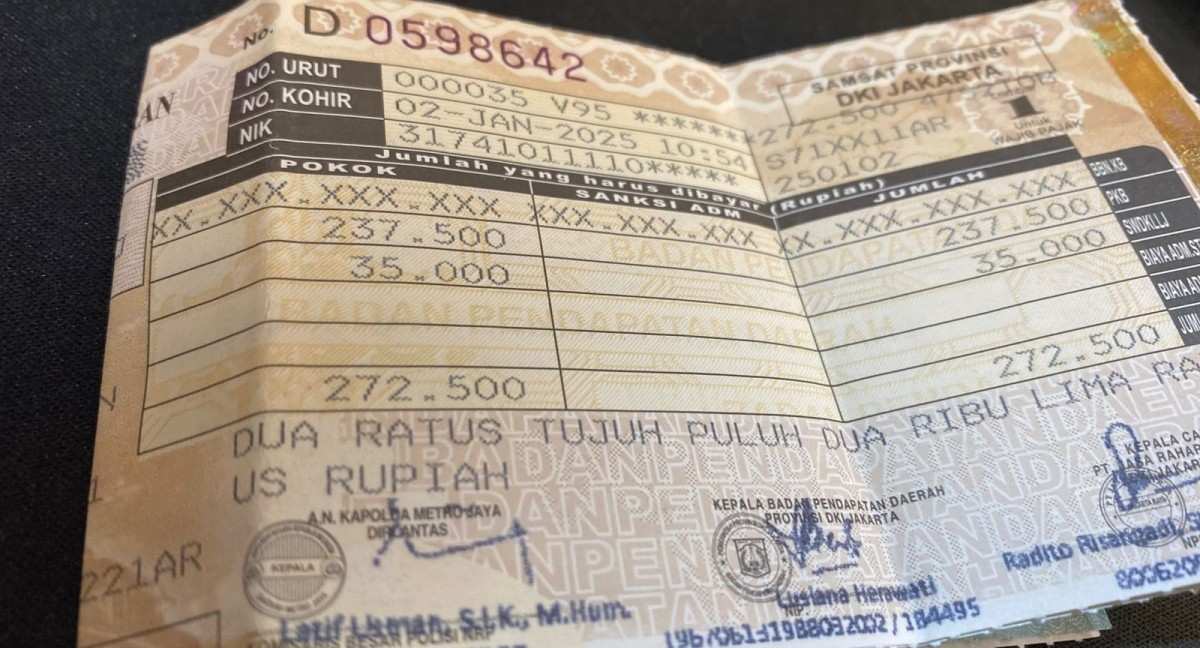 No. D 0598642
SAMSAT PROVINSI
DKI JAKARTA
NO. URUT 000035 V95 *******272.500
1
Untuk
WAJIB PAJAK
NO. KOHIR 02-JAN-2025 S71XX11AR
NIK 31741011110***** 250102
Jumlah yang harus dibayar (Rupiah)
POKOK SANKSI ADM JUMLAH
XX.XXX.XXX XXX XXX.XXX.XXX XX.XXX.XXX.XXX BBN.KB
237.500 237.500 PKB
35.000 35.000 SWDKLLJ
BIAYA ADM.ST
BIAYA AD
272.500 272.500 JUM
DUA RATUS TUJUH PULUH DUA RIBU LIMA RA
US RUPIAH
A.N. KAPOLDA METRO JAYA
DIRLANTAS
KEPALA BADAN PENDAPATAN DAERAH
PROVINSI DKI JAKARTA
KEPALA CA
PT. JASA RAHAR
JAKARTA
KEPALA
221AR
S.I.K., M.Hum.
Lusiana Herawati
NIP
Radito Risangadi
BESAR POLISI NRP
800620